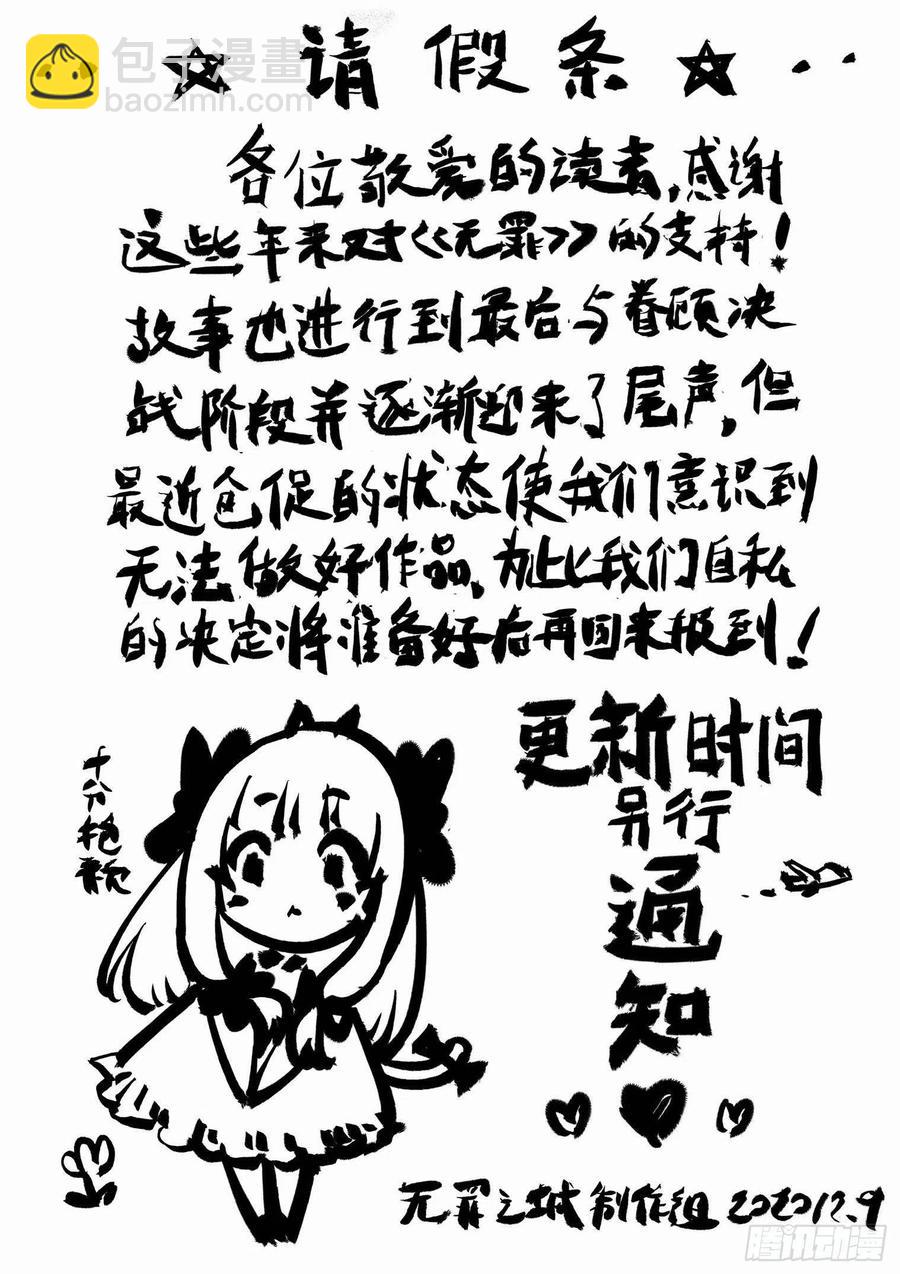 包子漫畫
baozimh.com
☆ 请假条 ☆ ..
各位敬爱的读者,感谢
这些年来对《无罪》的支持!
故事也进行到最后与眷顾决
战阶段并逐渐迎来了尾声,但
最近仓促的状态使我们意识到
无法做好作品,为此我们自私
的决定将准备好后再回来报到!
十分抱歉
更新时间
另行
通
知
无罪之城制作组 2020 12.9
腾讯动漫